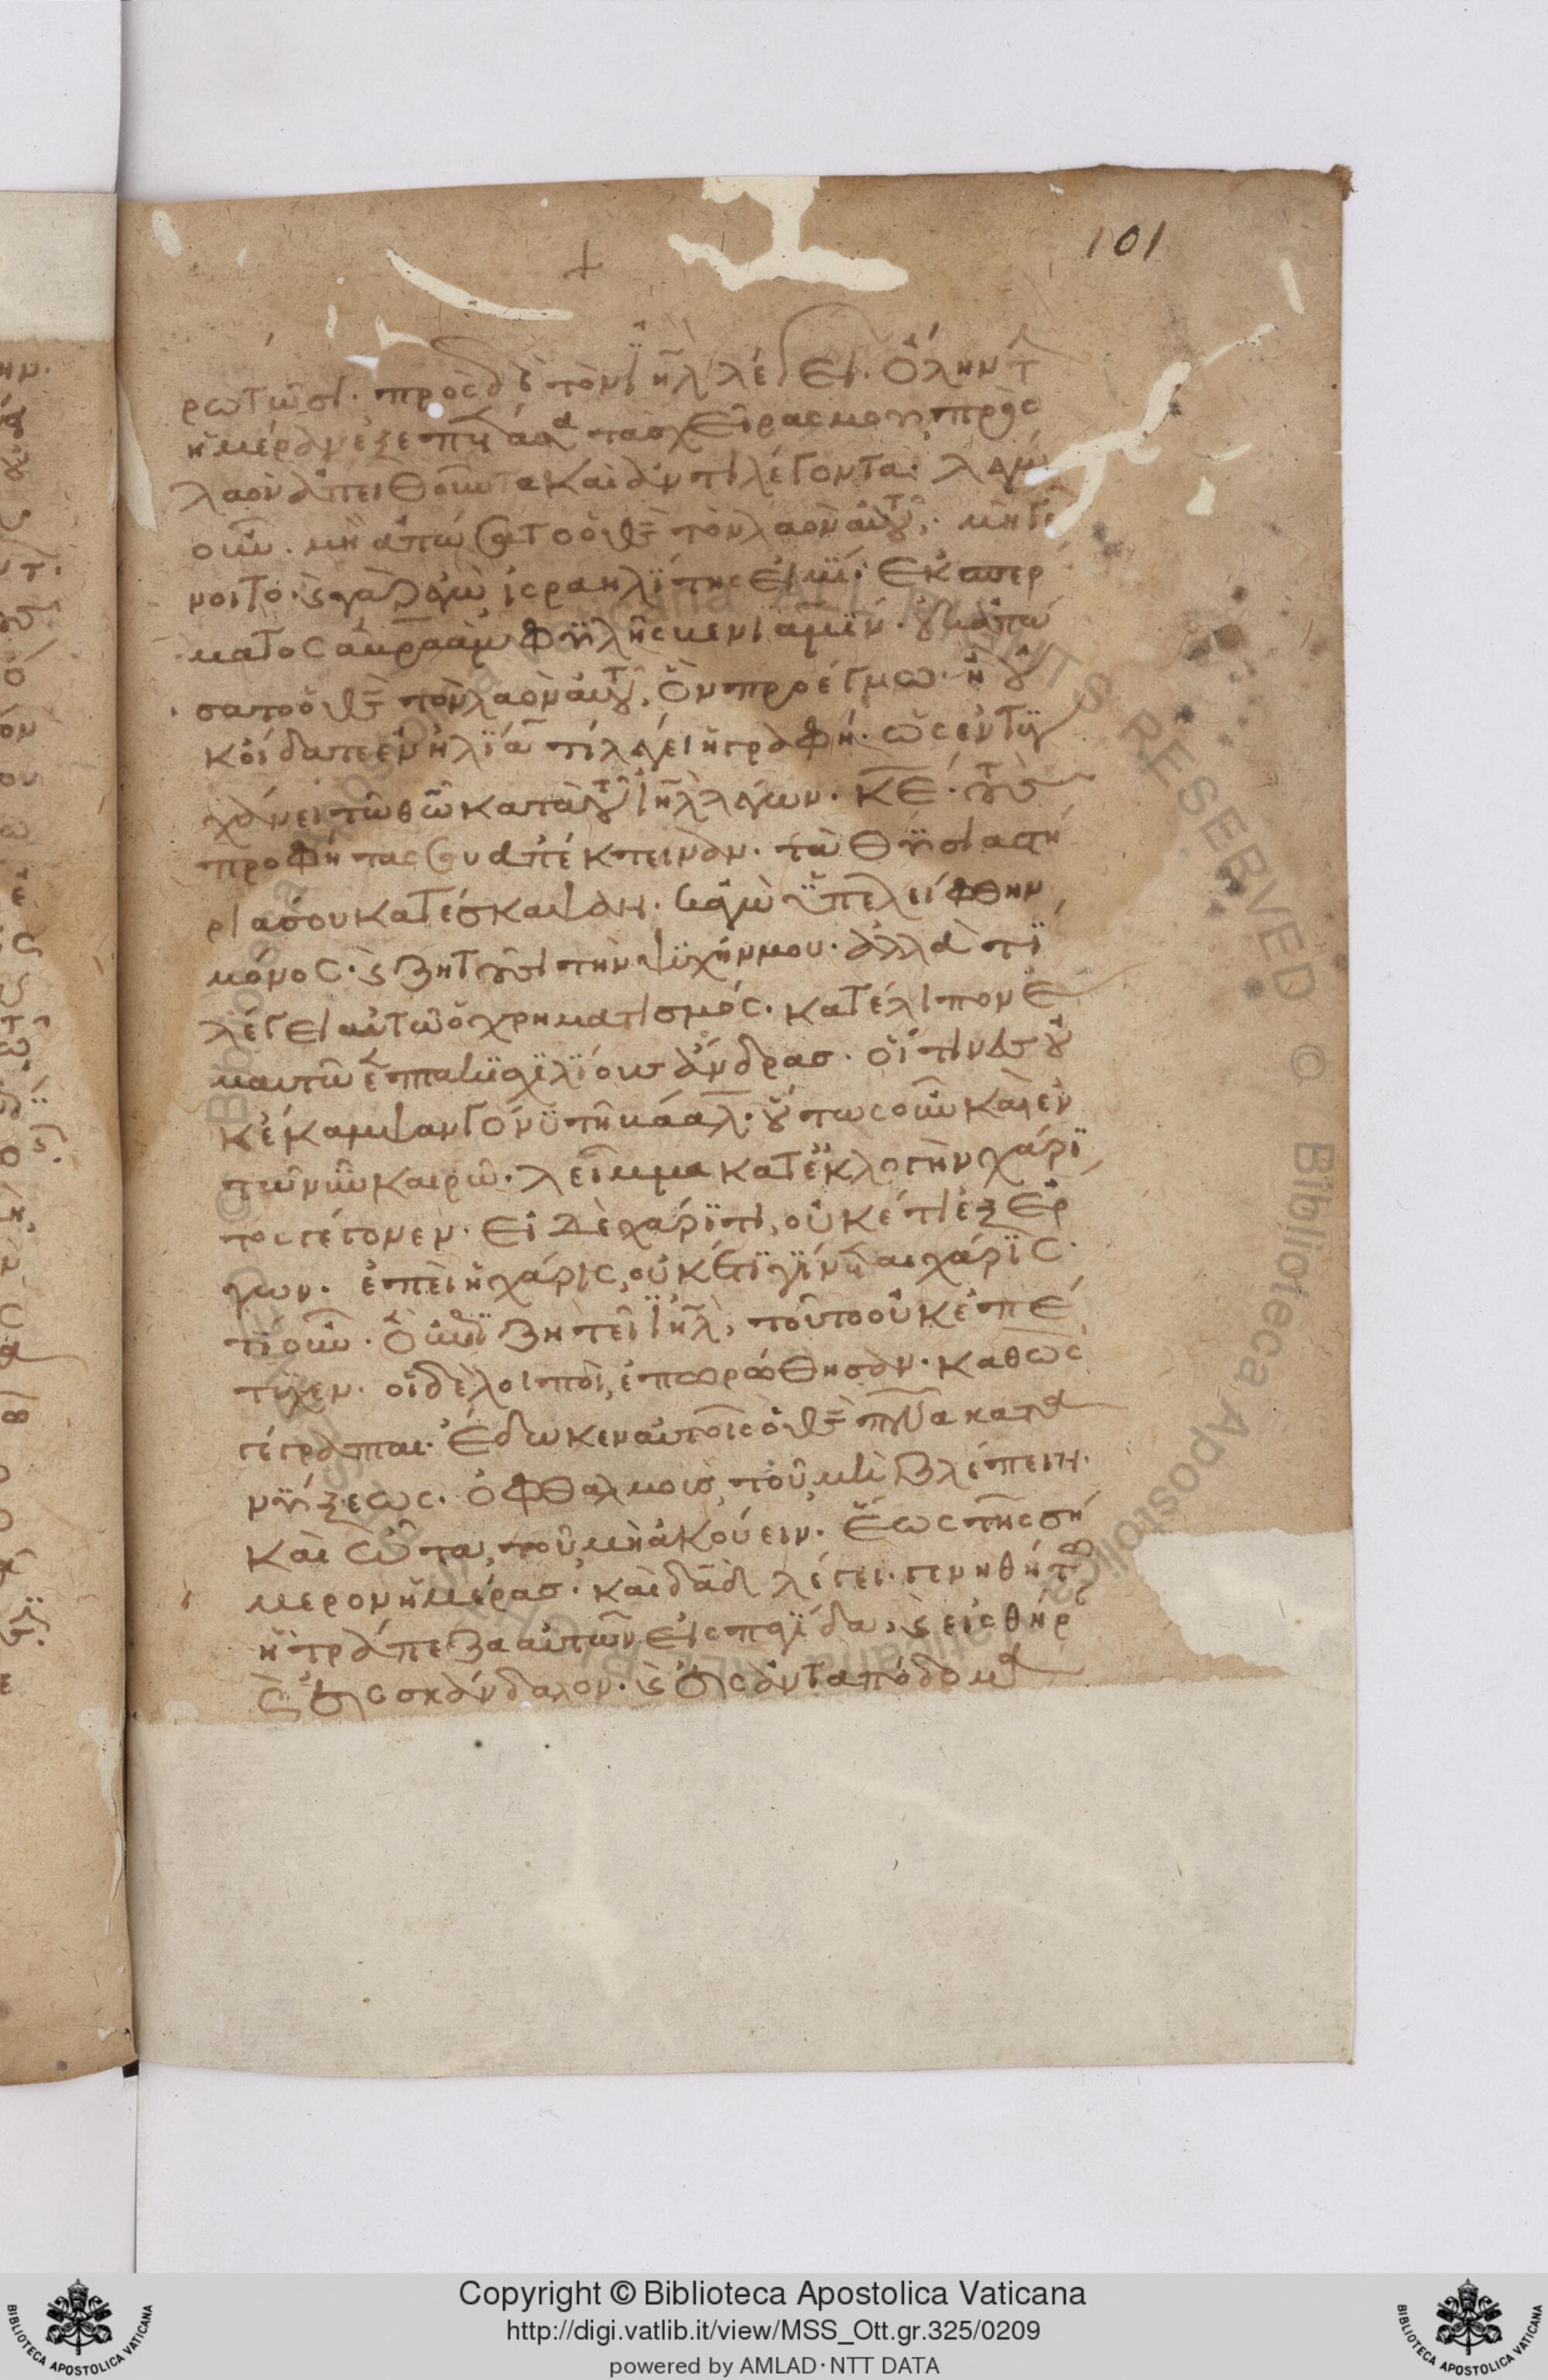 101
ρωτῶσι· πρὸς δὲ τὸν ἰη̅λ̅ λέγει· ὅλην τ
ἡμέραν ἐξεπέτασα τὰς χεῖρας μου, πρὸς
λαὸν ἀπειθοῦντα καὶ ἀντιλέγοντα· λέγω
οὖν· μὴ ἀπώσατο ὁ θ̅ς̅ τὸν λαὸν αὐτοῦ· μὴ γέ
νοιτο· ϗ γὰρ ἐγὼ ἰσραηλΐτης εἰμΐ· ἐκ σπέρ
ματος ἀβραάμ φϋλῆς βενιαμΐν· οὐκ ἀπώ
σατο ὁ θ̅ς̅ τὸν λαὸν αὐτοῦ, ὃν προέγνω· ἢ οὐ
κ οἴδατε ἐν ἠλΐα τί λέγει ἡ γραφή· ὡς ἐντϋγ
χάνει τῶ θῶ κατὰ τοῦ ἰη̅λ̅ λέγων· κ̅ε̅· τοὺς
προφήτας σου ἀπέκτειναν· τὰ θϋσιαστή
ριά σου κατέσκαψαν· κἀγὼ ϋπελείφθην
μόνος· ϗ ζητοῦσι τὴν ψϋχήν μου· ἀλλὰ τΐ
λέγει αὐτῶ ὁ χρηματισμός· κατέλιπον ἐ
μαυτῶ ἑπτακϊσχϊλΐους ἄνδρας· οἵτινες οὐ
κ ἔκαμψαν γόνϋ τῆ βάαλ· οὕτως οὖν καὶ ἐν
τῶ νῦν καιρῶ· λεῖμμα κατ' ἐκλογὴν χάρϊ
τος γέγονεν· εἰ δὲ χάρϊτι, οὐκέτι ἐξ ἔρ
γων· ἐπεὶ ἡ χάρις, οὐκέτϊ γΐνεται χάρϊς·
τί οὖν· ὃ ἐπϊζητεῖ ἰη̅λ̅, τοῦτο οὐκ ἐπέ
τϋχεν· οἱ δὲ λοιποὶ, ἐπωρώθησαν· καθὼς
γέγραπται· ἔδωκεν αὐτοῖς ὁ θ̅ς̅ π̅ν̅α̅ κατα
νϋξεως· ὀφθαλμοὺς, τοῦ μὴ βλέπειν·
καὶ ὦτα, τοῦ μὴ ἀκούειν· ἕως τῆς σή
μερον ἡμέρας· καὶ δ̅α̅δ̅ λέγει· γενηθήτω
ἡ τράπεζα αὐτῶν εἰς παγΐδα, ϗ εἰς θήρ
ϗ εἰς σκάνδαλον· ϗ εἰς ἀνταπόδομα
Copyright © Biblioteca Apostolica Vaticana
http://digi.vatlib.it/view/MSS_Ott.gr.325/0209
powered by AMLAD·NTT DATA